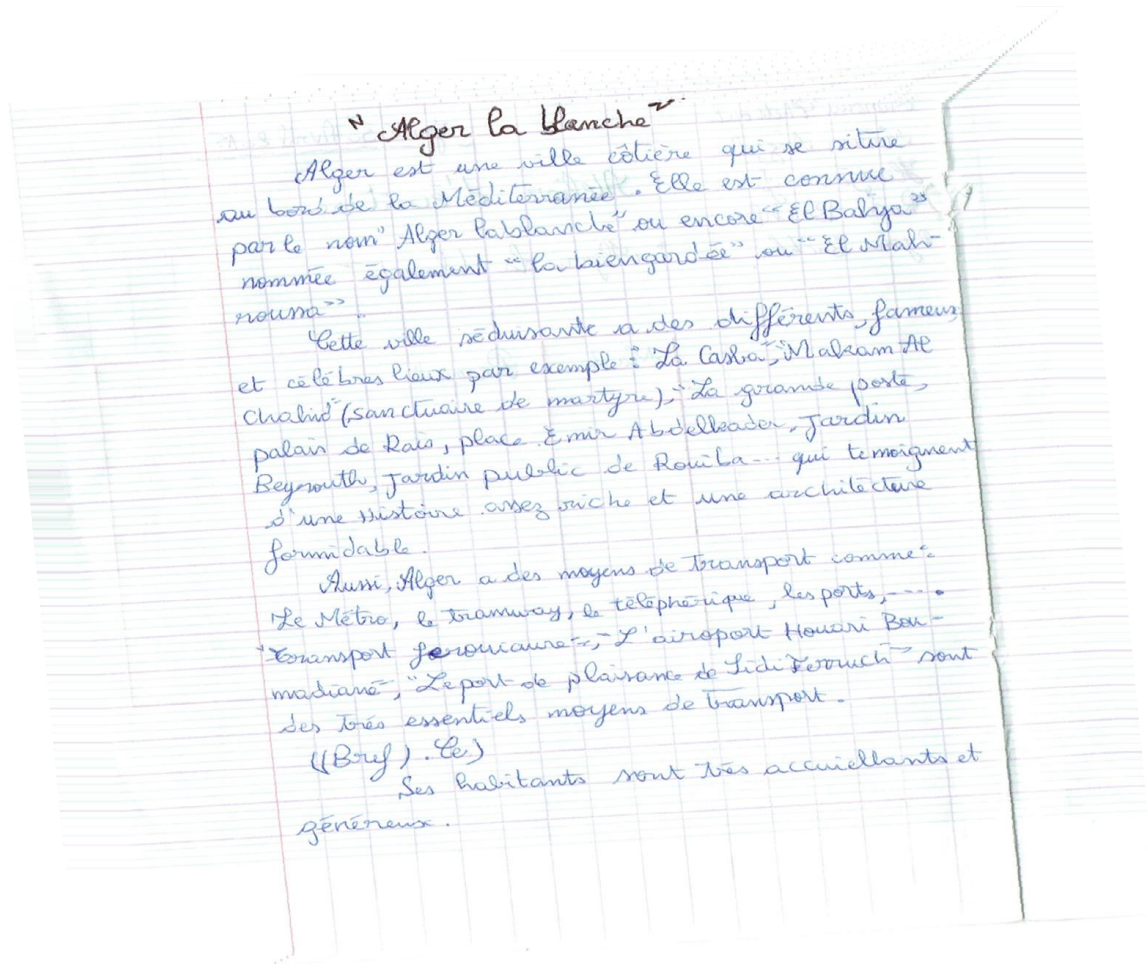 "Alger la blanche"
Alger est une ville côtière qui se situe
au bord de la Méditerranée. Elle est connue
par le nom "Alger la blanche" ou encore "El Bahya"
nommée également "la bien gardée" ou "El Mah-
roussa".
Cette ville séduisante a des différents, fameux
et célébres lieux par exemple : "La Casba", "Makam Al
chahid" (sanctuaire de martyre), "La grande poste,
palais de Rais, place Emir Abdelkader, Jardin
Beyrouth, Jardin public de Rouiba... qui temoignent
d'une Histoire assez riche et une architecture
formidable.
Aussi, Alger a des moyens de transport comme :
"Le Métro, le tramway, le téléphérique, les ports, ....
"transport ferouiaure", "L'airoport Houari Bou-
madiane", "Le port de plaisance de Sidi Ferruch" sont
des trés essentiels moyens de transport.
((Bref). Ce)
Ses habitants sont trés accuiellants et
généreux.